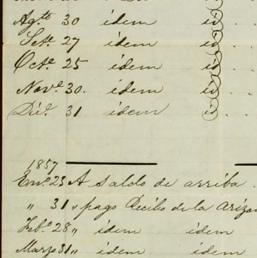 Agto 30 idem id
Sete 27 idem id
Octe 25 idem id
Nove 30. idem id
Dice 31 idem id
1857
Eno 25 A saldo de arriba.
" 31 " pago Recibo de la
Febo 28 " idem idem
Marzo 31 " idem idem